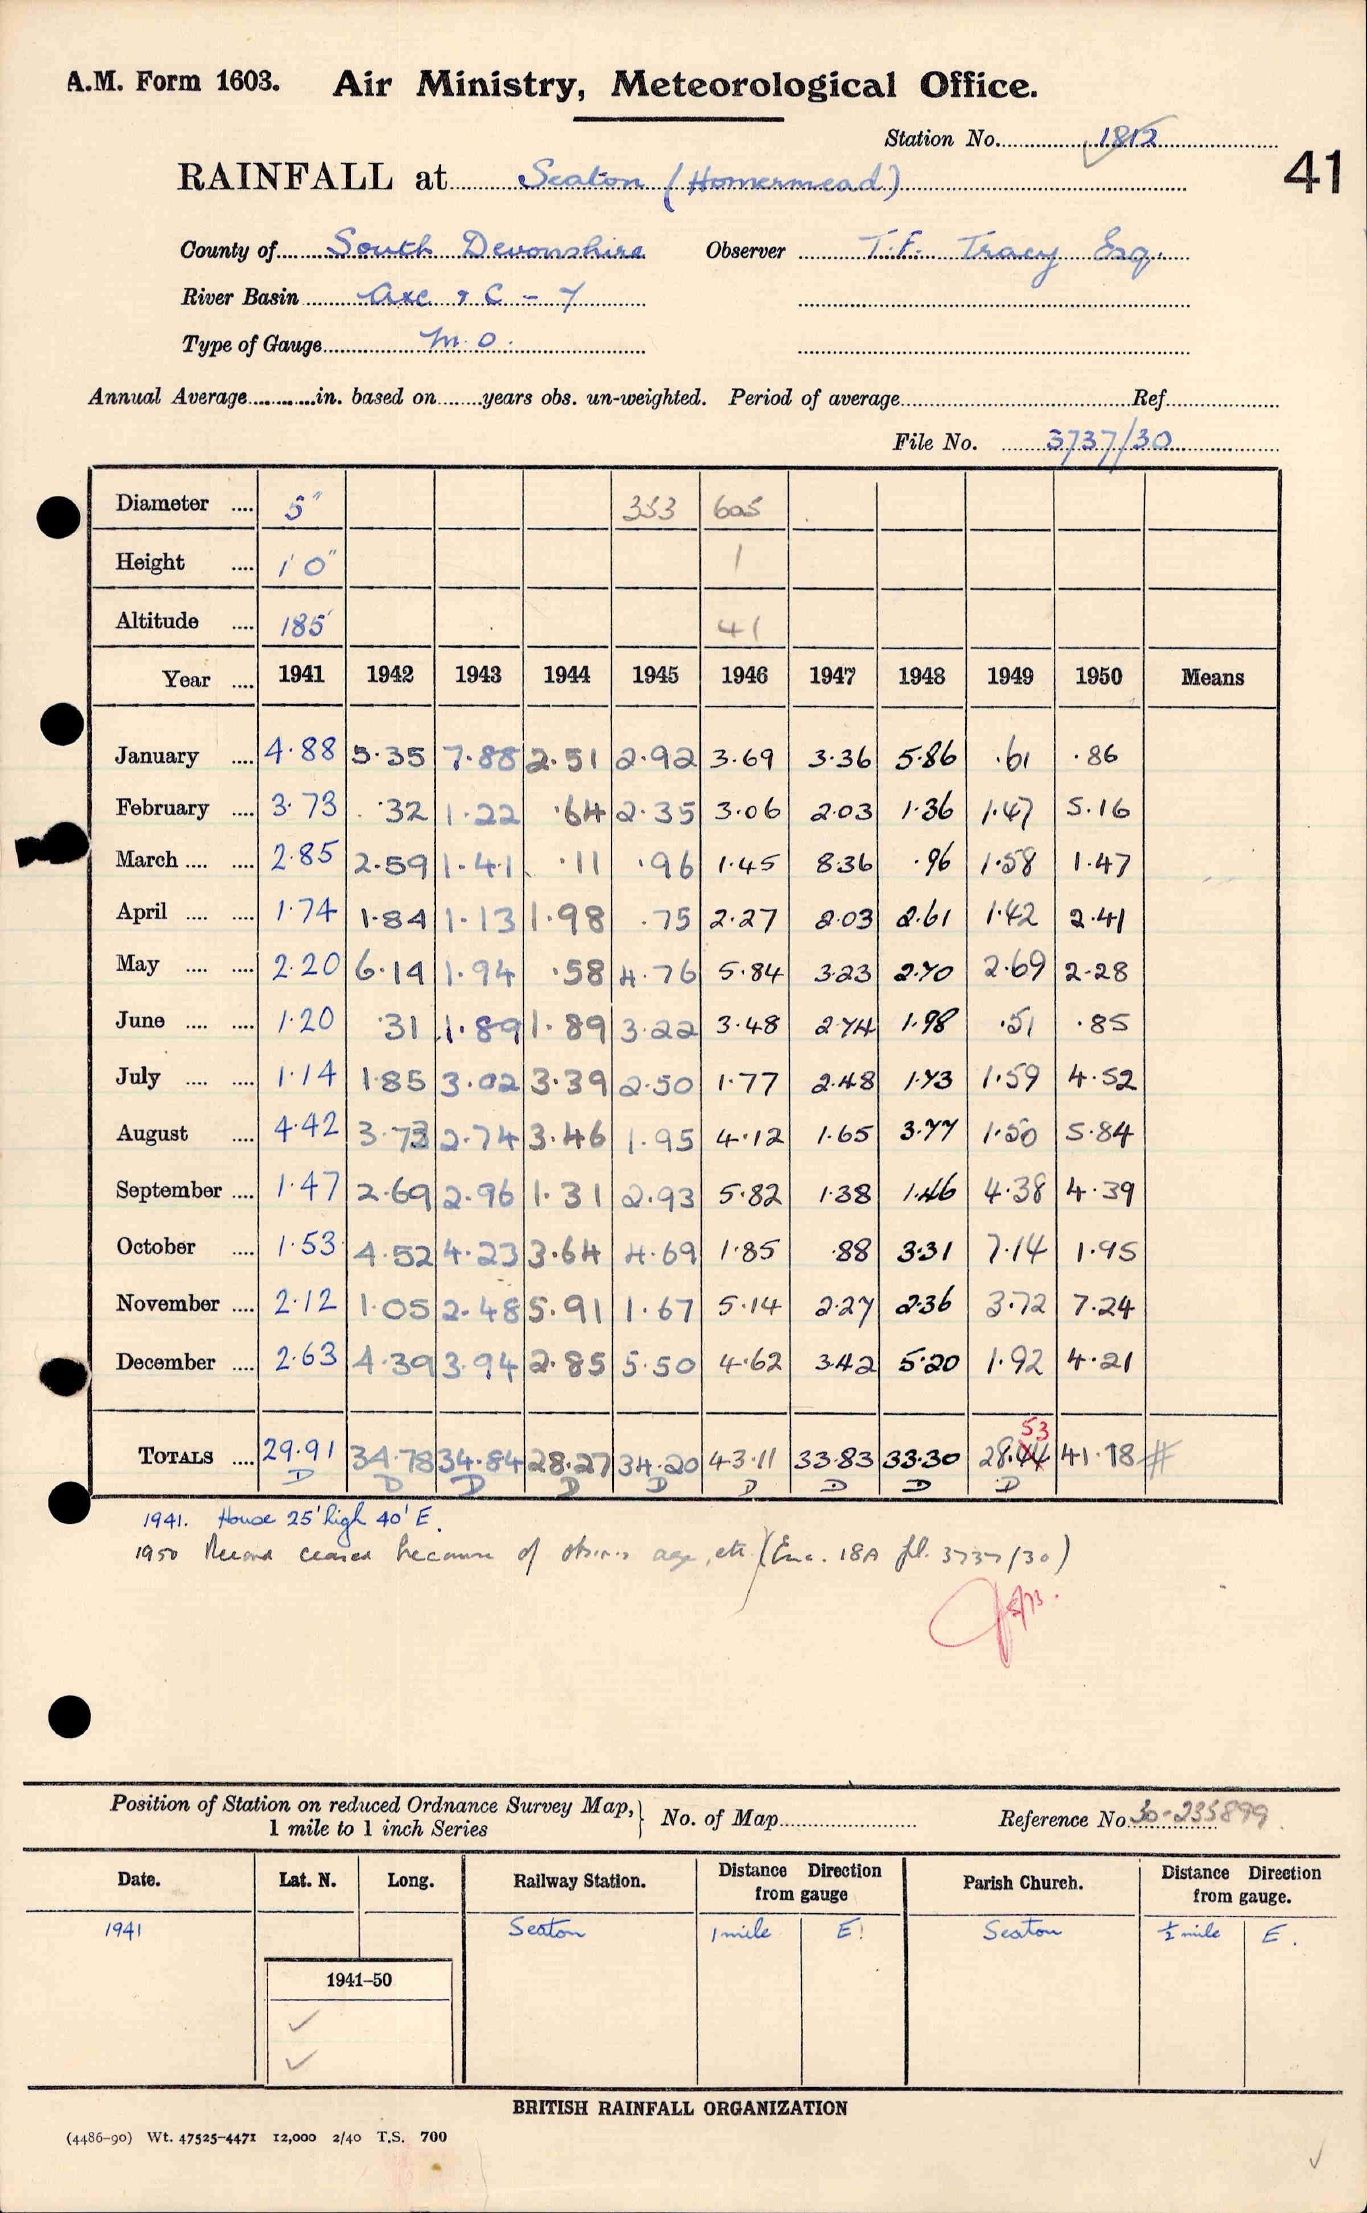 A.M. Form 1603. Air Ministry, Meteorological Office.
Station No. 1812
41
RAINFALL at Seaton (Homermead)
County of South Devonshire Observer T.F. Tracy Esq.
River Basin Axe & C - 7
Type of Gauge M.O.
Annual Average in. based on years obs. un-weighted. Period of average Ref
File No. 3737/30
Diameter .... 5" 353 605
Height .... 1'0" 1
Altitude .... 185' 41
Year .... 1941 1942 1943 1944 1945 1946 1947 1948 1949 1950 Means
January .... 4.88 5.35 7.88 2.51 2.92 3.69 3.36 5.86 .61 .86
February .... 3.73 .32 1.22 .64 2.35 3.06 2.03 1.36 1.47 5.16
March .... .... 2.85 2.59 1.41 .11 .96 1.45 8.36 .96 1.58 1.47
April .... .... 1.74 1.84 1.13 1.98 .75 2.27 2.03 2.61 1.42 2.41
May .... .... 2.20 6.14 1.94 .58 4.76 5.84 3.23 2.70 2.69 2.28
June .... .... 1.20 .31 1.89 1.89 3.22 3.48 2.74 1.98 .51 .85
July .... .... 1.14 1.85 3.02 3.39 2.50 1.77 2.48 1.73 1.59 4.52
August .... 4.42 3.73 2.74 3.46 1.95 4.12 1.65 3.77 1.50 5.84
September .... 1.47 2.69 2.96 1.31 2.93 5.82 1.38 1.46 4.38 4.39
October .... 1.53 4.52 4.23 3.64 4.69 1.85 .88 3.31 7.14 1.95
November .... 2.12 1.05 2.48 5.91 1.67 5.14 2.27 2.36 3.72 7.24
December .... 2.63 4.39 3.94 2.85 5.50 4.62 3.42 5.20 1.92 4.21
53
TOTALS .... 29.91 34.78 34.84 28.27 34.20 43.11 33.83 33.30 28.44 41.18 #
D D D D D D D D D
1941. House 25' high 40' E.
1950 Record ceased because of obsrs age, etc. (Enc. 18A fl. 3737/30)
5/73.
Position of Station on reduced Ordnance Survey Map, } No. of Map Reference No. 30-235899
1 mile to 1 inch Series
Date. Lat. N. Long. Railway Station. Distance Direction from gauge Parish Church. Distance Direction from gauge.
1941 Seaton 1 mile E. Seaton ½ mile E.
1941–50
BRITISH RAINFALL ORGANIZATION
(4486-90) Wt. 47525-4471 12,000 2/40 T.S. 700